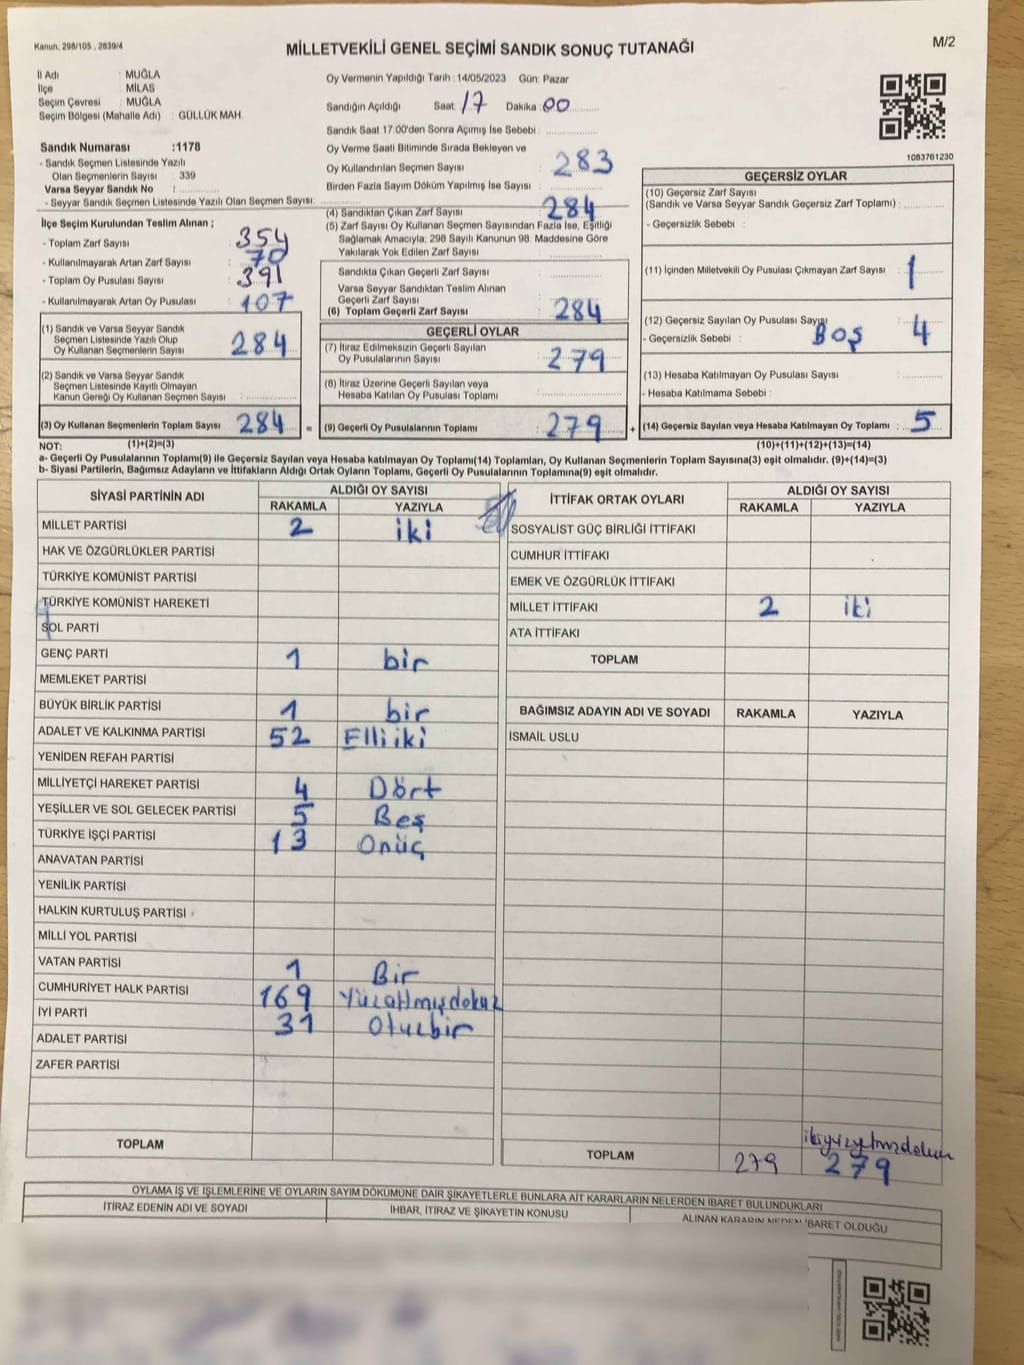 Kanun, 298/105 , 2839/4
MİLLETVEKİLİ GENEL SEÇİMİ SANDIK SONUÇ TUTANAĞI
M/2
İl Adı : MUĞLA
İlçe : MİLAS
Seçim Çevresi : MUĞLA
Seçim Bölgesi (Mahalle Adı) : GÜLLÜK MAH.
Sandık Numarası :1178
- Sandık Seçmen Listesinde Yazılı
Olan Seçmenlerin Sayısı : 339
Varsa Seyyar Sandık No :
- Seyyar Sandık Seçmen Listesinde Yazılı Olan Seçmen Sayısı:
İlçe Seçim Kurulundan Teslim Alınan ;
- Toplam Zarf Sayısı : 354
- Kullanılmayarak Artan Zarf Sayısı : 70
- Toplam Oy Pusulası Sayısı : 391
- Kullanılmayarak Artan Oy Pusulası : 107
(1) Sandık ve Varsa Seyyar Sandık
Seçmen Listesinde Yazılı Olup
Oy Kullanan Seçmenlerin Sayısı : 284
(2) Sandık ve Varsa Seyyar Sandık
Seçmen Listesinde Kayıtlı Olmayan
Kanun Gereği Oy Kullanan Seçmen Sayısı :
(3) Oy Kullanan Seçmenlerin Toplam Sayısı : 284 =
Oy Vermenin Yapıldığı Tarih :14/05/2023 Gün: Pazar
Sandığın Açıldığı Saat: 17 Dakika: 00
Sandık Saat 17.00'den Sonra Açımış İse Sebebi :
Oy Verme Saati Bitiminde Sırada Bekleyen ve
Oy Kullandırılan Seçmen Sayısı : 283
Birden Fazla Sayım Döküm Yapılmış İse Sayısı :
(4) Sandıktan Çıkan Zarf Sayısı : 284
(5) Zarf Sayısı Oy Kullanan Seçmen Sayısından Fazla İse, Eşitliği
Sağlamak Amacıyla; 298 Sayılı Kanunun 98. Maddesine Göre
Yakılarak Yok Edilen Zarf Sayısı :
Sandıkta Çıkan Geçerli Zarf Sayısı :
Varsa Seyyar Sandıktan Teslim Alınan
Geçerli Zarf Sayısı :
(6) Toplam Geçerli Zarf Sayısı : 284
GEÇERLİ OYLAR
(7) İtiraz Edilmeksizin Geçerli Sayılan
Oy Pusulalarının Sayısı : 279
(8) İtiraz Üzerine Geçerli Sayılan veya
Hesaba Katılan Oy Pusulası Toplamı :
(9) Geçerli Oy Pusulalarının Toplamı : 279 +
1083761230
GEÇERSİZ OYLAR
(10) Geçersiz Zarf Sayısı
(Sandık ve Varsa Seyyar Sandık Geçersiz Zarf Toplamı) :
- Geçersizlik Sebebi :
(11) İçinden Milletvekili Oy Pusulası Çıkmayan Zarf Sayısı : 1
(12) Geçersiz Sayılan Oy Pusulası Sayısı : 4
- Geçersizlik Sebebi : BOŞ
(13) Hesaba Katılmayan Oy Pusulası Sayısı :
- Hesaba Katılmama Sebebi :
(14) Geçersiz Sayılan veya Hesaba Katılmayan Oy Toplamı : 5
NOT: (1)+(2)=(3) (10)+(11)+(12)+(13)=(14)
a- Geçerli Oy Pusulalarının Toplamı(9) ile Geçersiz Sayılan veya Hesaba katılmayan Oy Toplamı(14) Toplamları, Oy Kullanan Seçmenlerin Toplam Sayısına(3) eşit olmalıdır. (9)+(14)=(3)
b- Siyasi Partilerin, Bağımsız Adayların ve İttifakların Aldığı Ortak Oyların Toplamı, Geçerli Oy Pusulalarının Toplamına(9) eşit olmalıdır.
SİYASİ PARTİNİN ADI ALDIĞI OY SAYISI
RAKAMLA YAZIYLA
MİLLET PARTİSİ 2 iki
HAK VE ÖZGÜRLÜKLER PARTİSİ
TÜRKİYE KOMÜNİST PARTİSİ
TÜRKİYE KOMÜNİST HAREKETİ
SOL PARTİ
GENÇ PARTİ 1 bir
MEMLEKET PARTİSİ
BÜYÜK BİRLİK PARTİSİ 1 bir
ADALET VE KALKINMA PARTİSİ 52 Elli iki
YENİDEN REFAH PARTİSİ
MİLLİYETÇİ HAREKET PARTİSİ 4 Dört
YEŞİLLER VE SOL GELECEK PARTİSİ 5 Beş
TÜRKİYE İŞÇİ PARTİSİ 13 Onüç
ANAVATAN PARTİSİ
YENİLİK PARTİSİ
HALKIN KURTULUŞ PARTİSİ
MİLLİ YOL PARTİSİ
VATAN PARTİSİ 1 Bir
CUMHURİYET HALK PARTİSİ 169 Yüzatmışdokuz
İYİ PARTİ 31 Otuzbir
ADALET PARTİSİ
ZAFER PARTİSİ
TOPLAM
İTTİFAK ORTAK OYLARI ALDIĞI OY SAYISI
RAKAMLA YAZIYLA
SOSYALİST GÜÇ BİRLİĞİ İTTİFAKI
CUMHUR İTTİFAKI
EMEK VE ÖZGÜRLÜK İTTİFAKI
MİLLET İTTİFAKI 2 iki
ATA İTTİFAKI
TOPLAM
BAĞIMSIZ ADAYIN ADI VE SOYADI RAKAMLA YAZIYLA
İSMAİL USLU
TOPLAM 279 279
OYLAMA İŞ VE İŞLEMLERİNE VE OYLARIN SAYIM DÖKÜMÜNE DAİR ŞİKAYETLERLE BUNLARA AİT KARARLARIN NELERDEN İBARET BULUNDUKLARI
İTİRAZ EDENİN ADI VE SOYADI İHBAR, İTİRAZ VE ŞİKAYETİN KONUSU ALINAN KARARIN NEDEN İBARET OLDUĞU